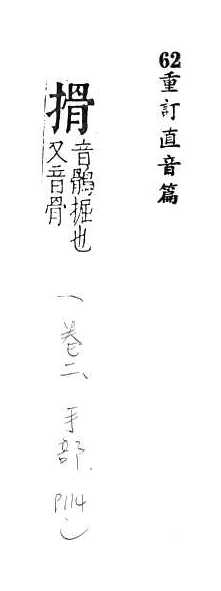 62重訂直音篇
搰
音鶻掘也
又音骨
(卷二、手部、P114)